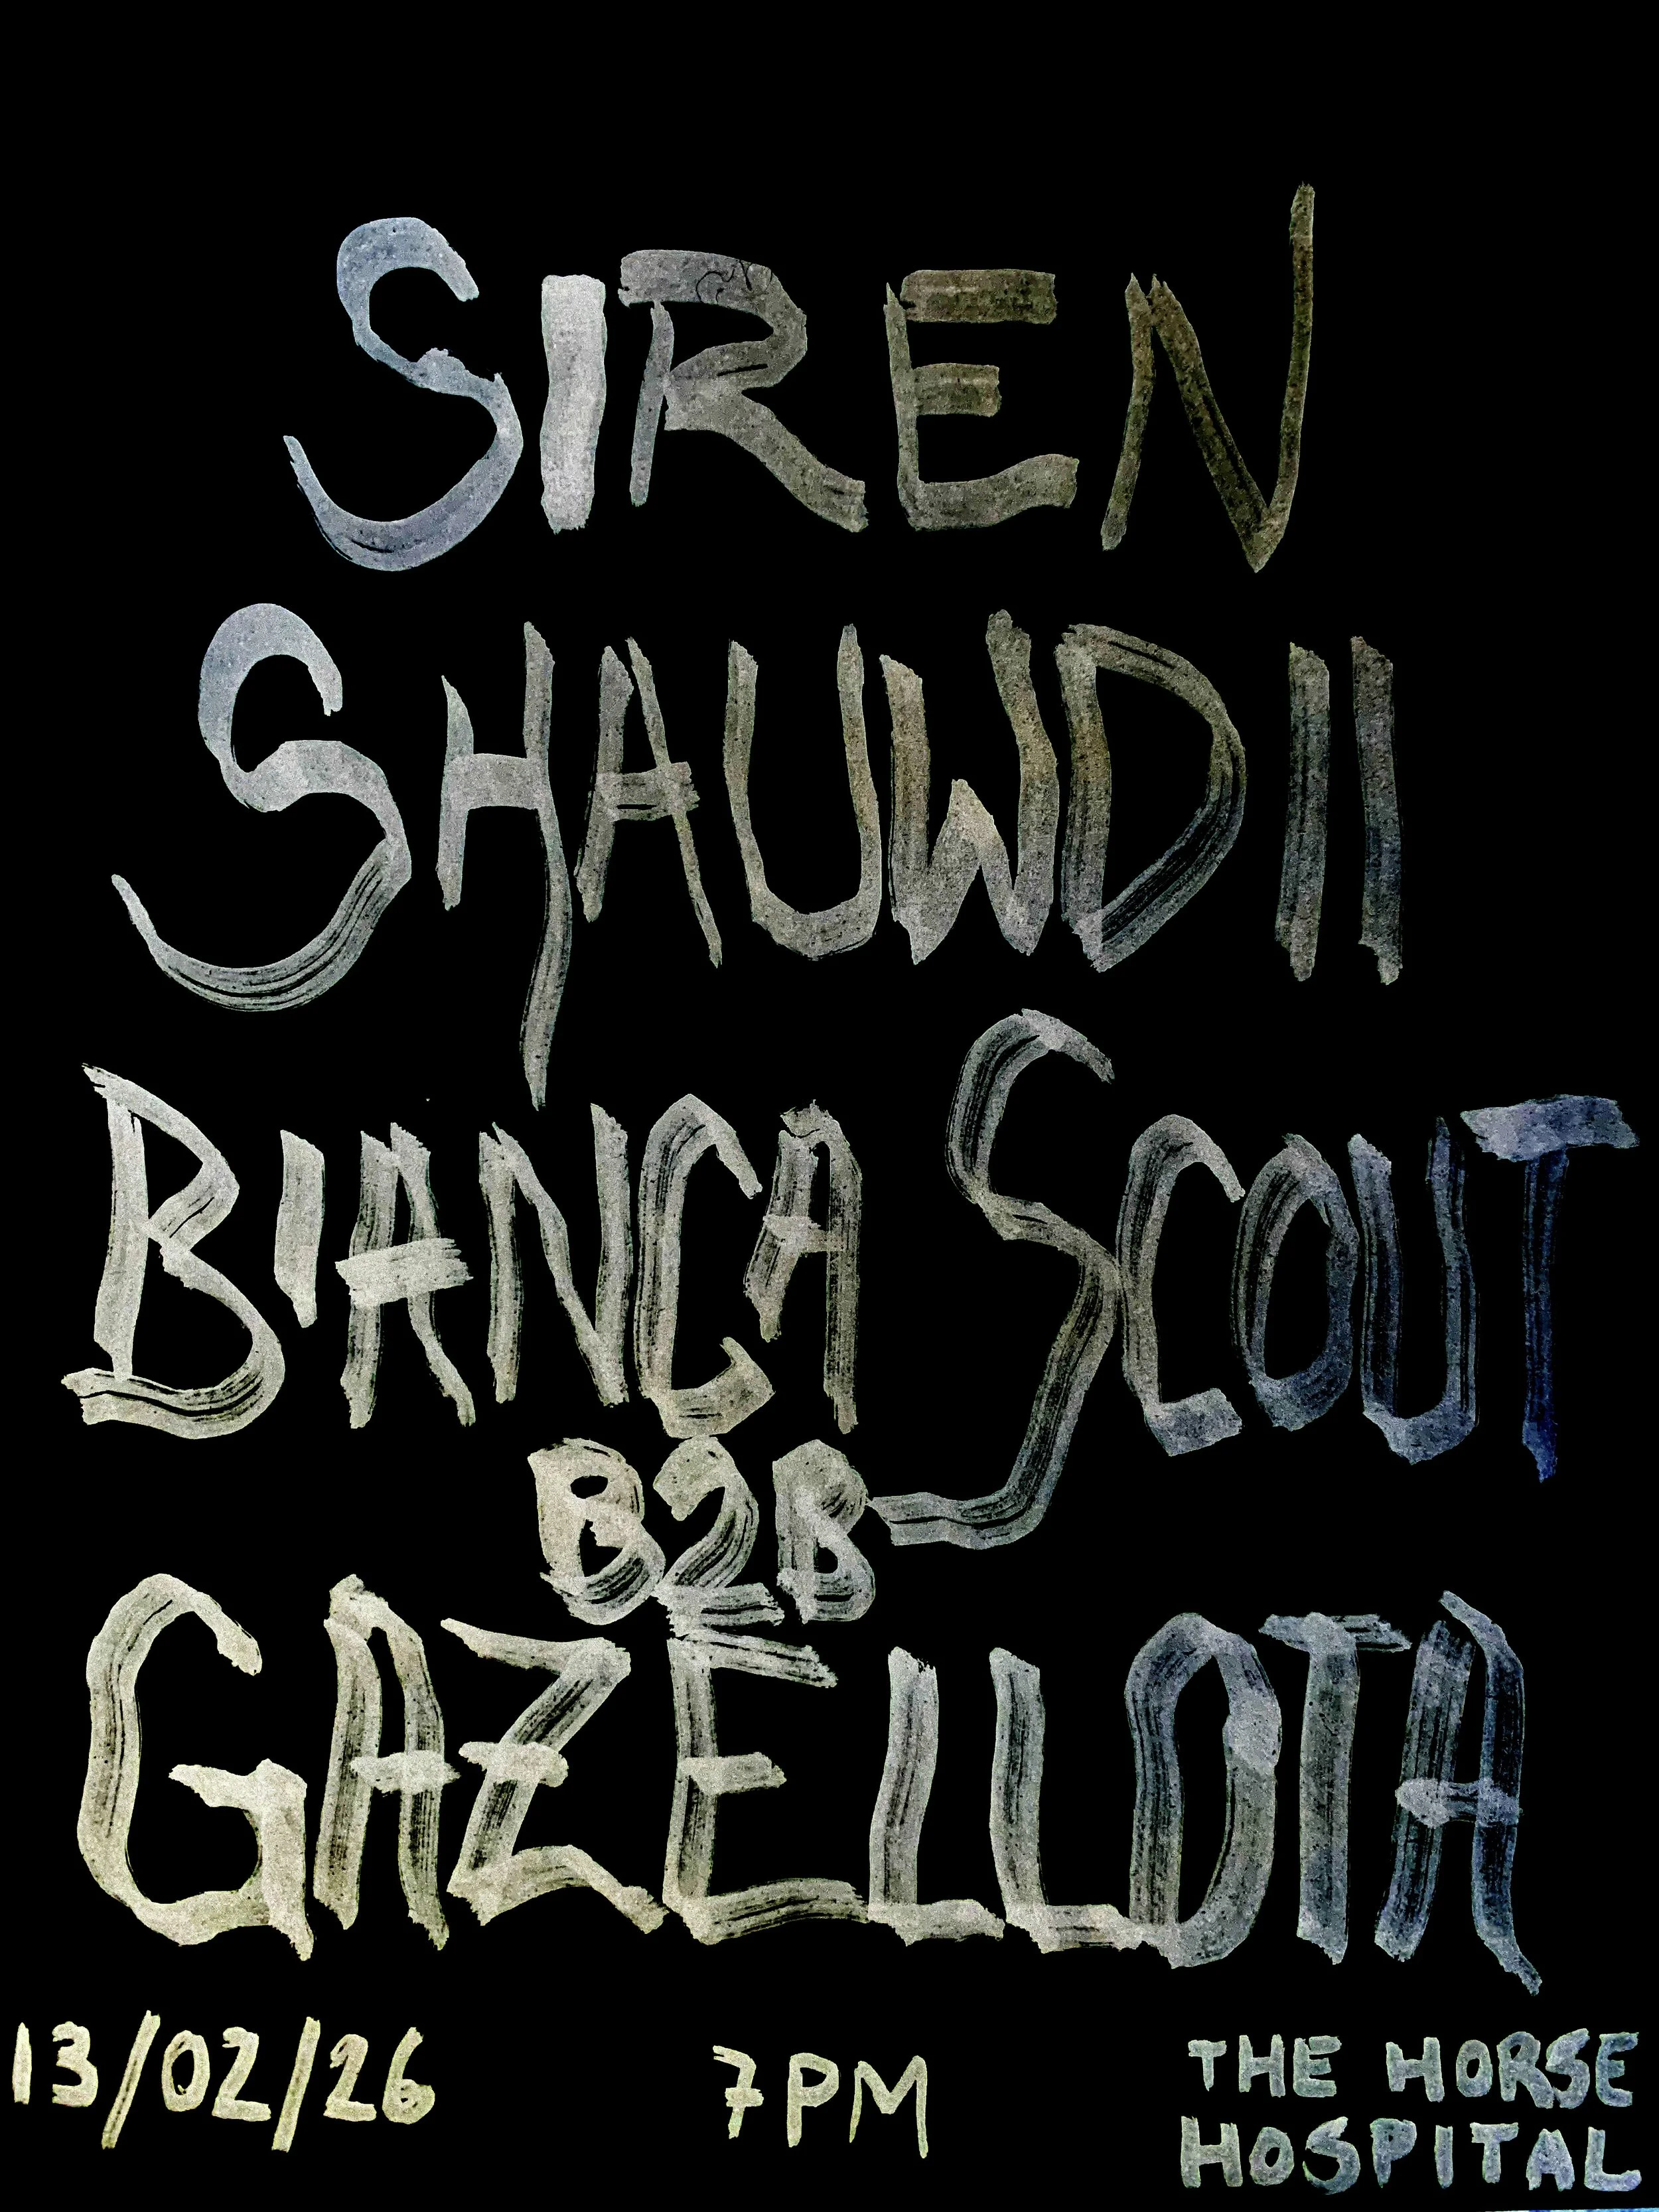 SIREN
SHAUWDII
BIANCA SCOUT
B2B
GAZELLOTA
13/02/26
7PM
THE HORSE
HOSPITAL